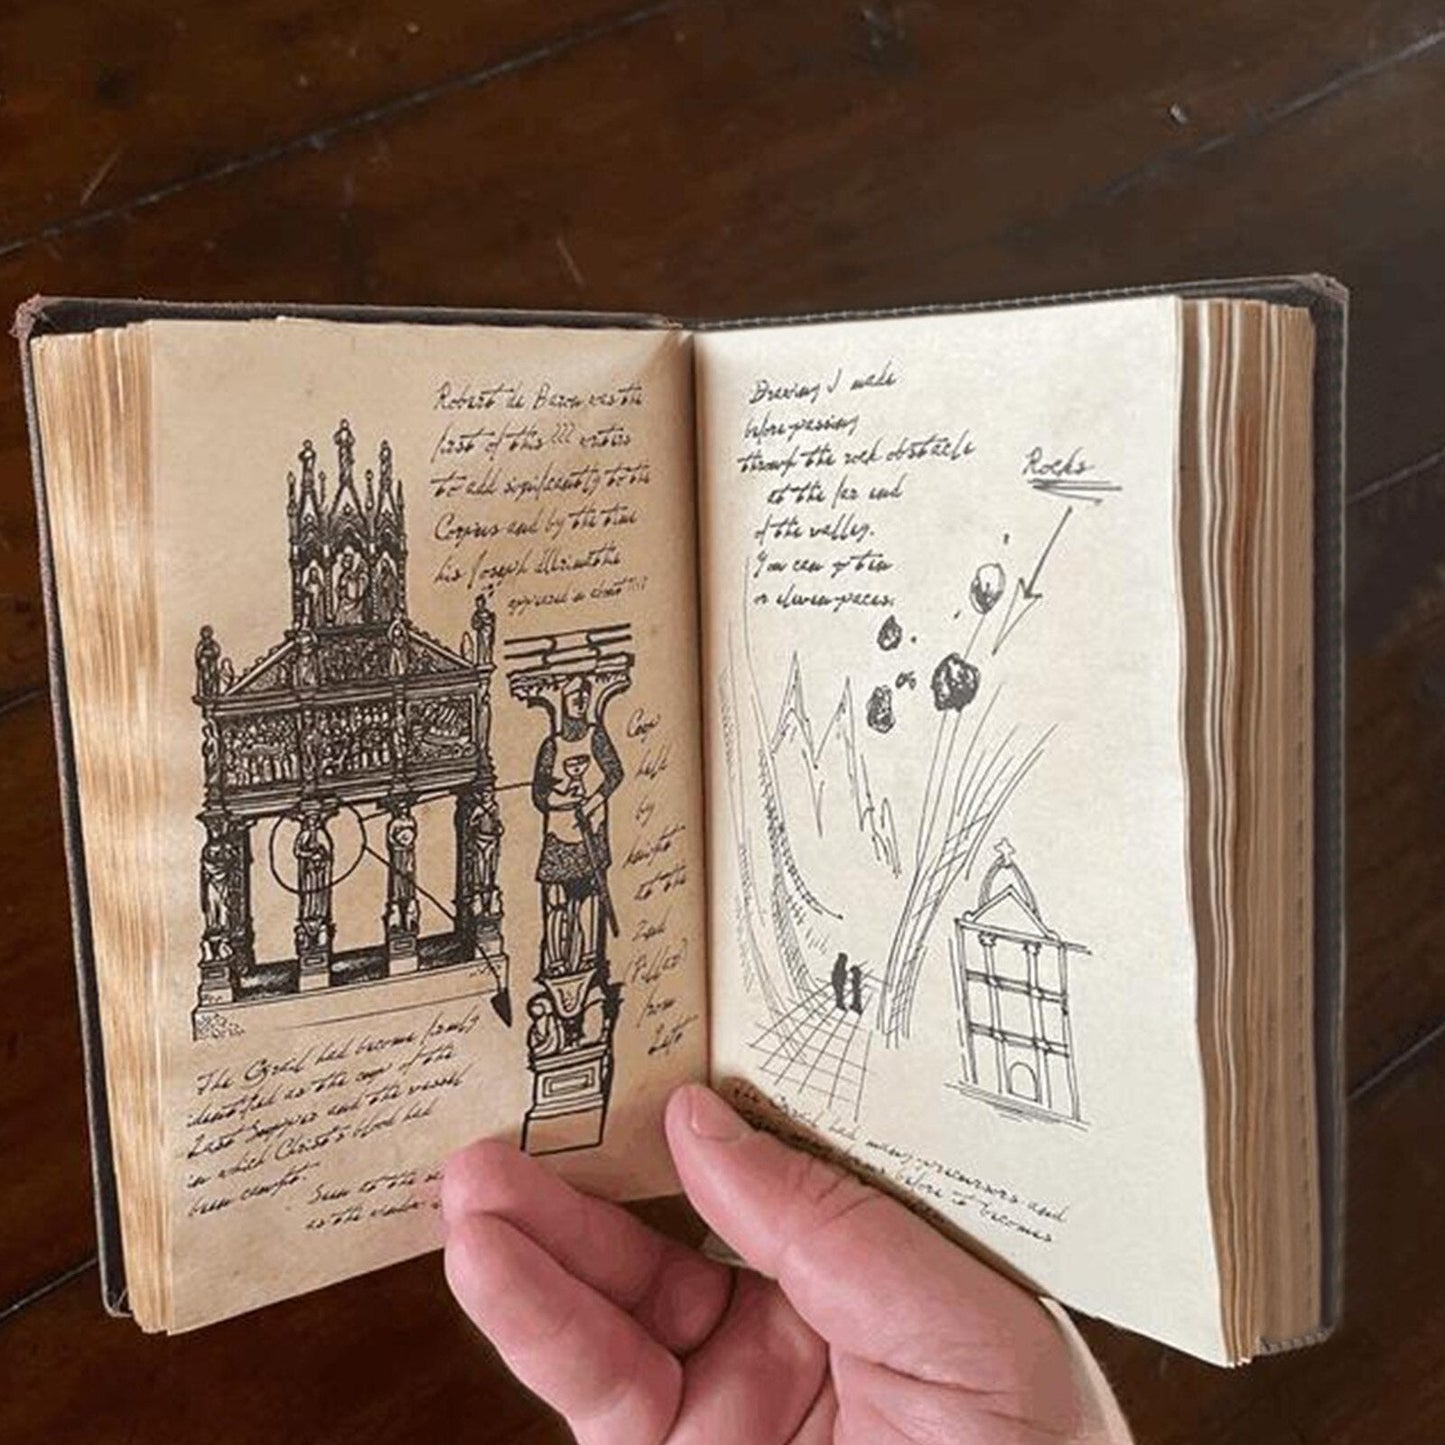 Robert de Boron was the
first of this ??? writers
to add significantly to the
Corpus and by the time
his Joseph d'Arimathe
appeared in about
Cup
held
by
knight
to the
2nd
(Pillar)
from
Left
The Grail had become firmly
identified as the cup of the
Last Supper and the vessel
in which Christ's blood had
been caught.
Seen at the
as the
Drawing I made
before passing
through the rock obstacle
at the far end
of the valley.
You can go ten
or eleven paces.
Rocks
The Grail had many precursors and
before it becomes